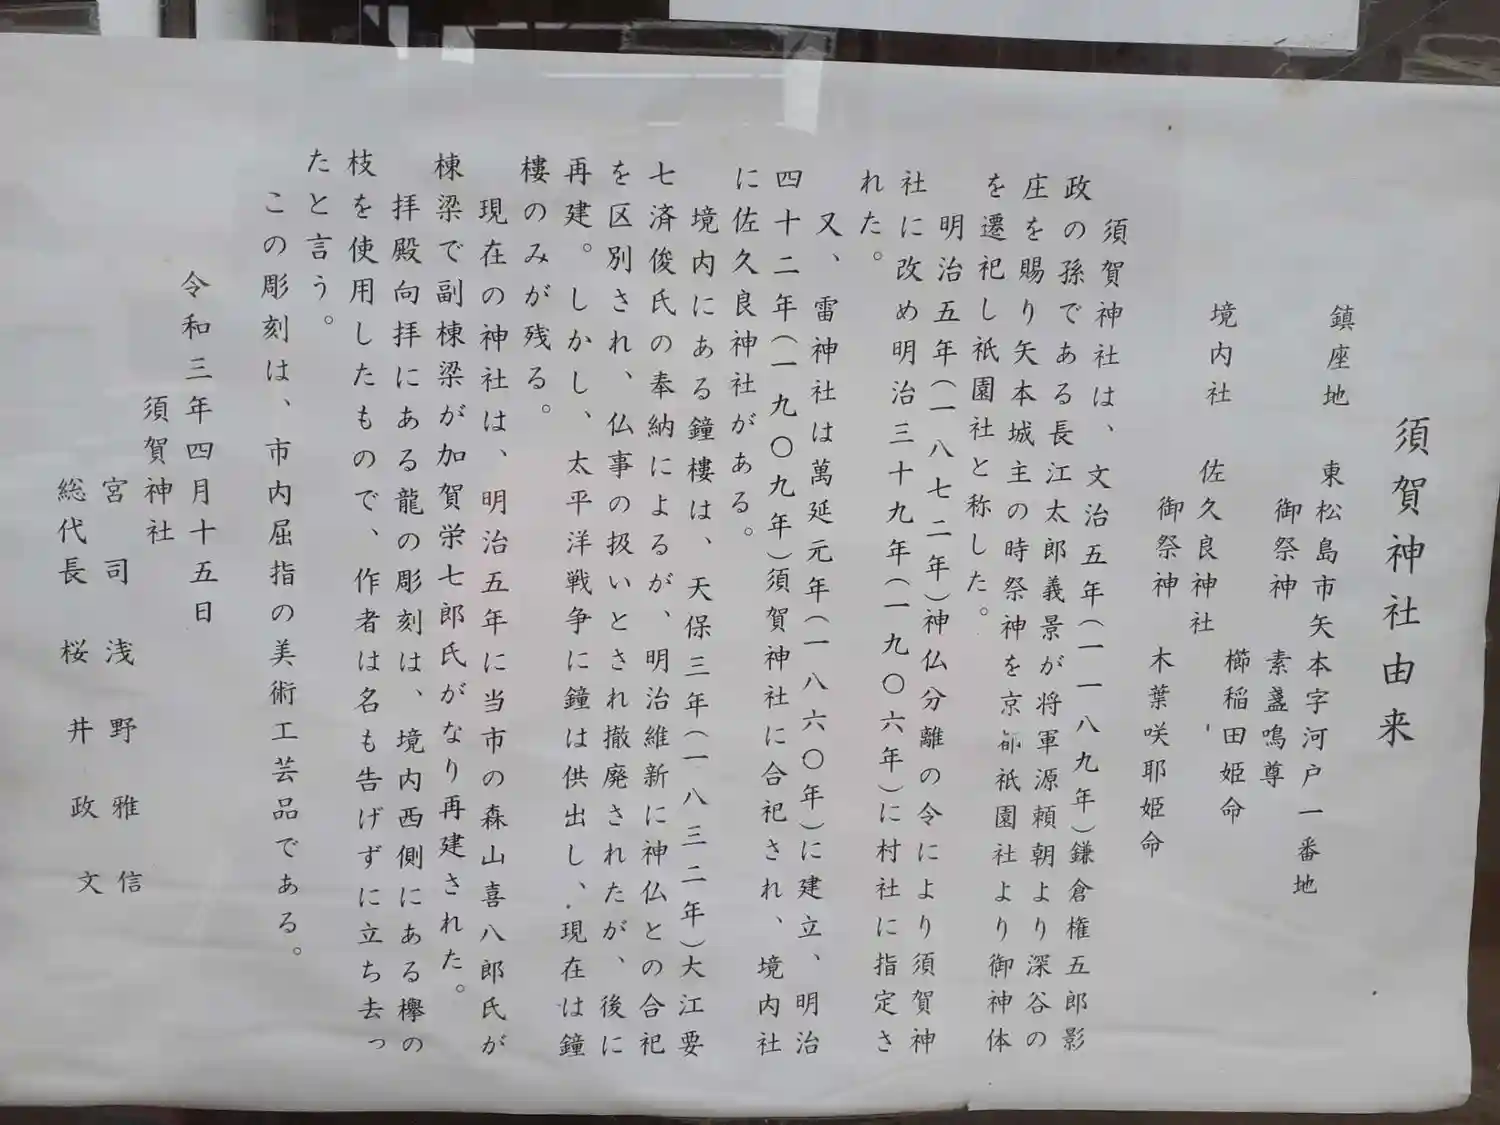 須賀神社由来
鎮座地 東松島市矢本字河戸一番地
御祭神 素盞鳴尊
櫛稲田姫命
境内社 佐久良神社
御祭神 木葉咲耶姫命
須賀神社は、文治五年(一一八九年)鎌倉権五郎影
政の孫である長江太郎義景が将軍源頼朝より深谷の
庄を賜り矢本城主の時祭神を京都祇園社より御神体
を遷祀し祇園社と称した。
明治五年(一八七二年)神仏分離の令により須賀神
社に改め明治三十九年(一九〇六年)に村社に指定さ
れた。
又、雷神社は萬延元年(一八六〇年)に建立、明治
四十二年(一九〇九年)須賀神社に合祀され、境内社
に佐久良神社がある。
境内にある鐘樓は、天保三年(一八三二年)大江要
七済俊氏の奉納によるが、明治維新に神仏との合祀
を区別され、仏事の扱いとされ撤廃されたが、後に
再建。しかし、太平洋戦争に鐘は供出し、現在は鐘
樓のみが残る。
現在の神社は、明治五年に当市の森山喜八郎氏が
棟梁で副棟梁が加賀栄七郎氏がなり再建された。
拝殿向拝にある龍の彫刻は、境内西側にある欅の
枝を使用したもので、作者は名も告げずに立ち去っ
たと言う。
この彫刻は、市内屈指の美術工芸品である。
令和三年四月十五日
須賀神社
宮司 浅野雅信
総代長 桜井政文